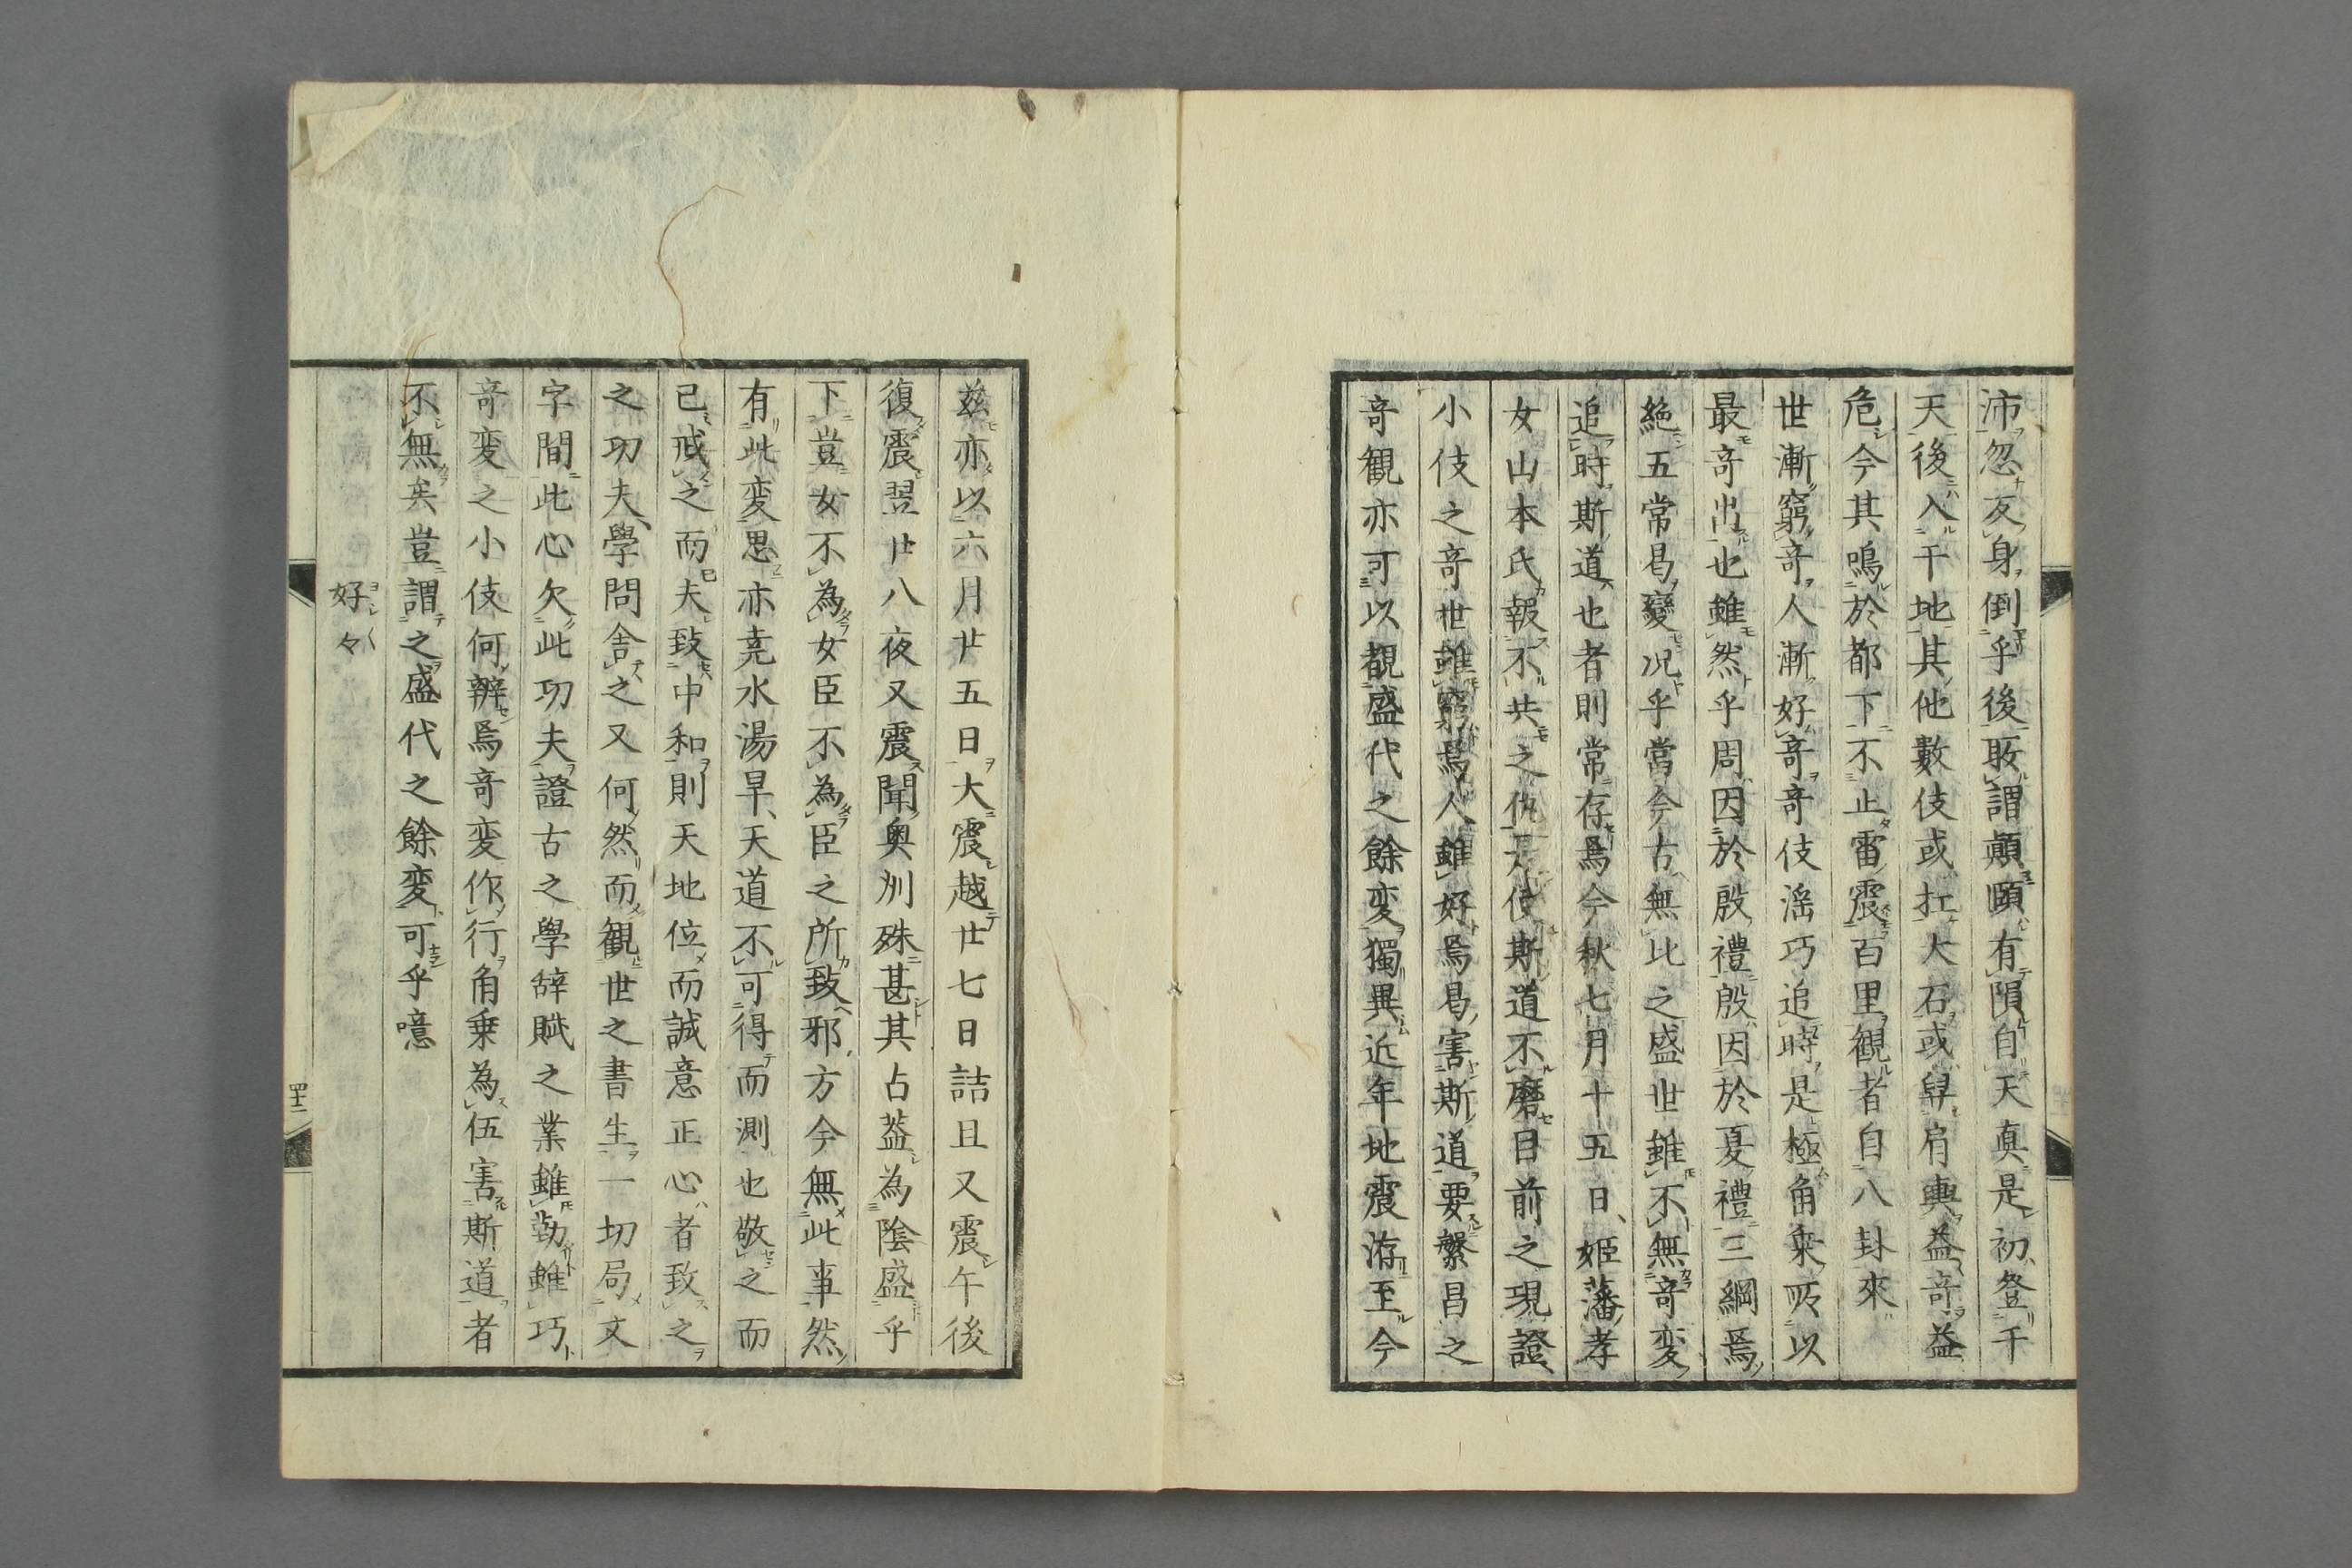 沛忽反身倒乎後敢謂顛頤有隕自天真是初登于
天後入于地其他數伎或扛大石或舁肩輿益奇益
危今其鳴於都下不止雷震百里観者自八卦來
世漸窮奇人漸好奇奇伎滛巧追時是極角乗所以
最奇出也雖然乎周因於殷禮殷因於夏禮三綱焉
絶五常曷變况乎當今古無比之盛世雖不無奇変
追時斯道也者則常存焉今秋七月十五日姫藩孝
女山本氏報不共之仇是使斯道不磨目前之現證
小伎之奇世雖窮焉人雖好焉曷害斯道要繁昌之
奇観亦可以覩盛代之餘変獨異近年地震洊至今
茲亦以六月廿五日大震越廿七日詰且又震午後
復震翌廿八夜又震聞奥州殊甚其占葢為陰盛乎
下豈女不為女臣不為臣之所致邪方今無此事然
有此変思亦尭水湯旱天道不可得而測也敬之而
已戒之而已夫致中和則天地位而誠意正心者致之
之功夫學問舎之又何然而観世之書生一切局文
字間此心欠此功夫證古之學辞賦之業雖勤雖巧
奇変之小伎何辨焉奇変作行角乗為伍害斯道者
不無矣豈謂之盛代之餘変可乎噫
好々
四十二